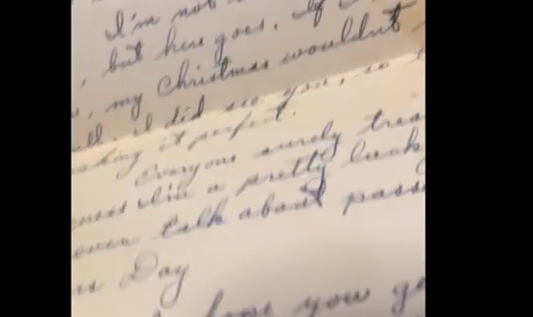 I'm not
, but here goes. If
, my Christmas wouldn't
all. I did see you, so
making it perfect.
Everyone surely trea
guess I'm a pretty luck
even talk about pass
as Day
hope you ge